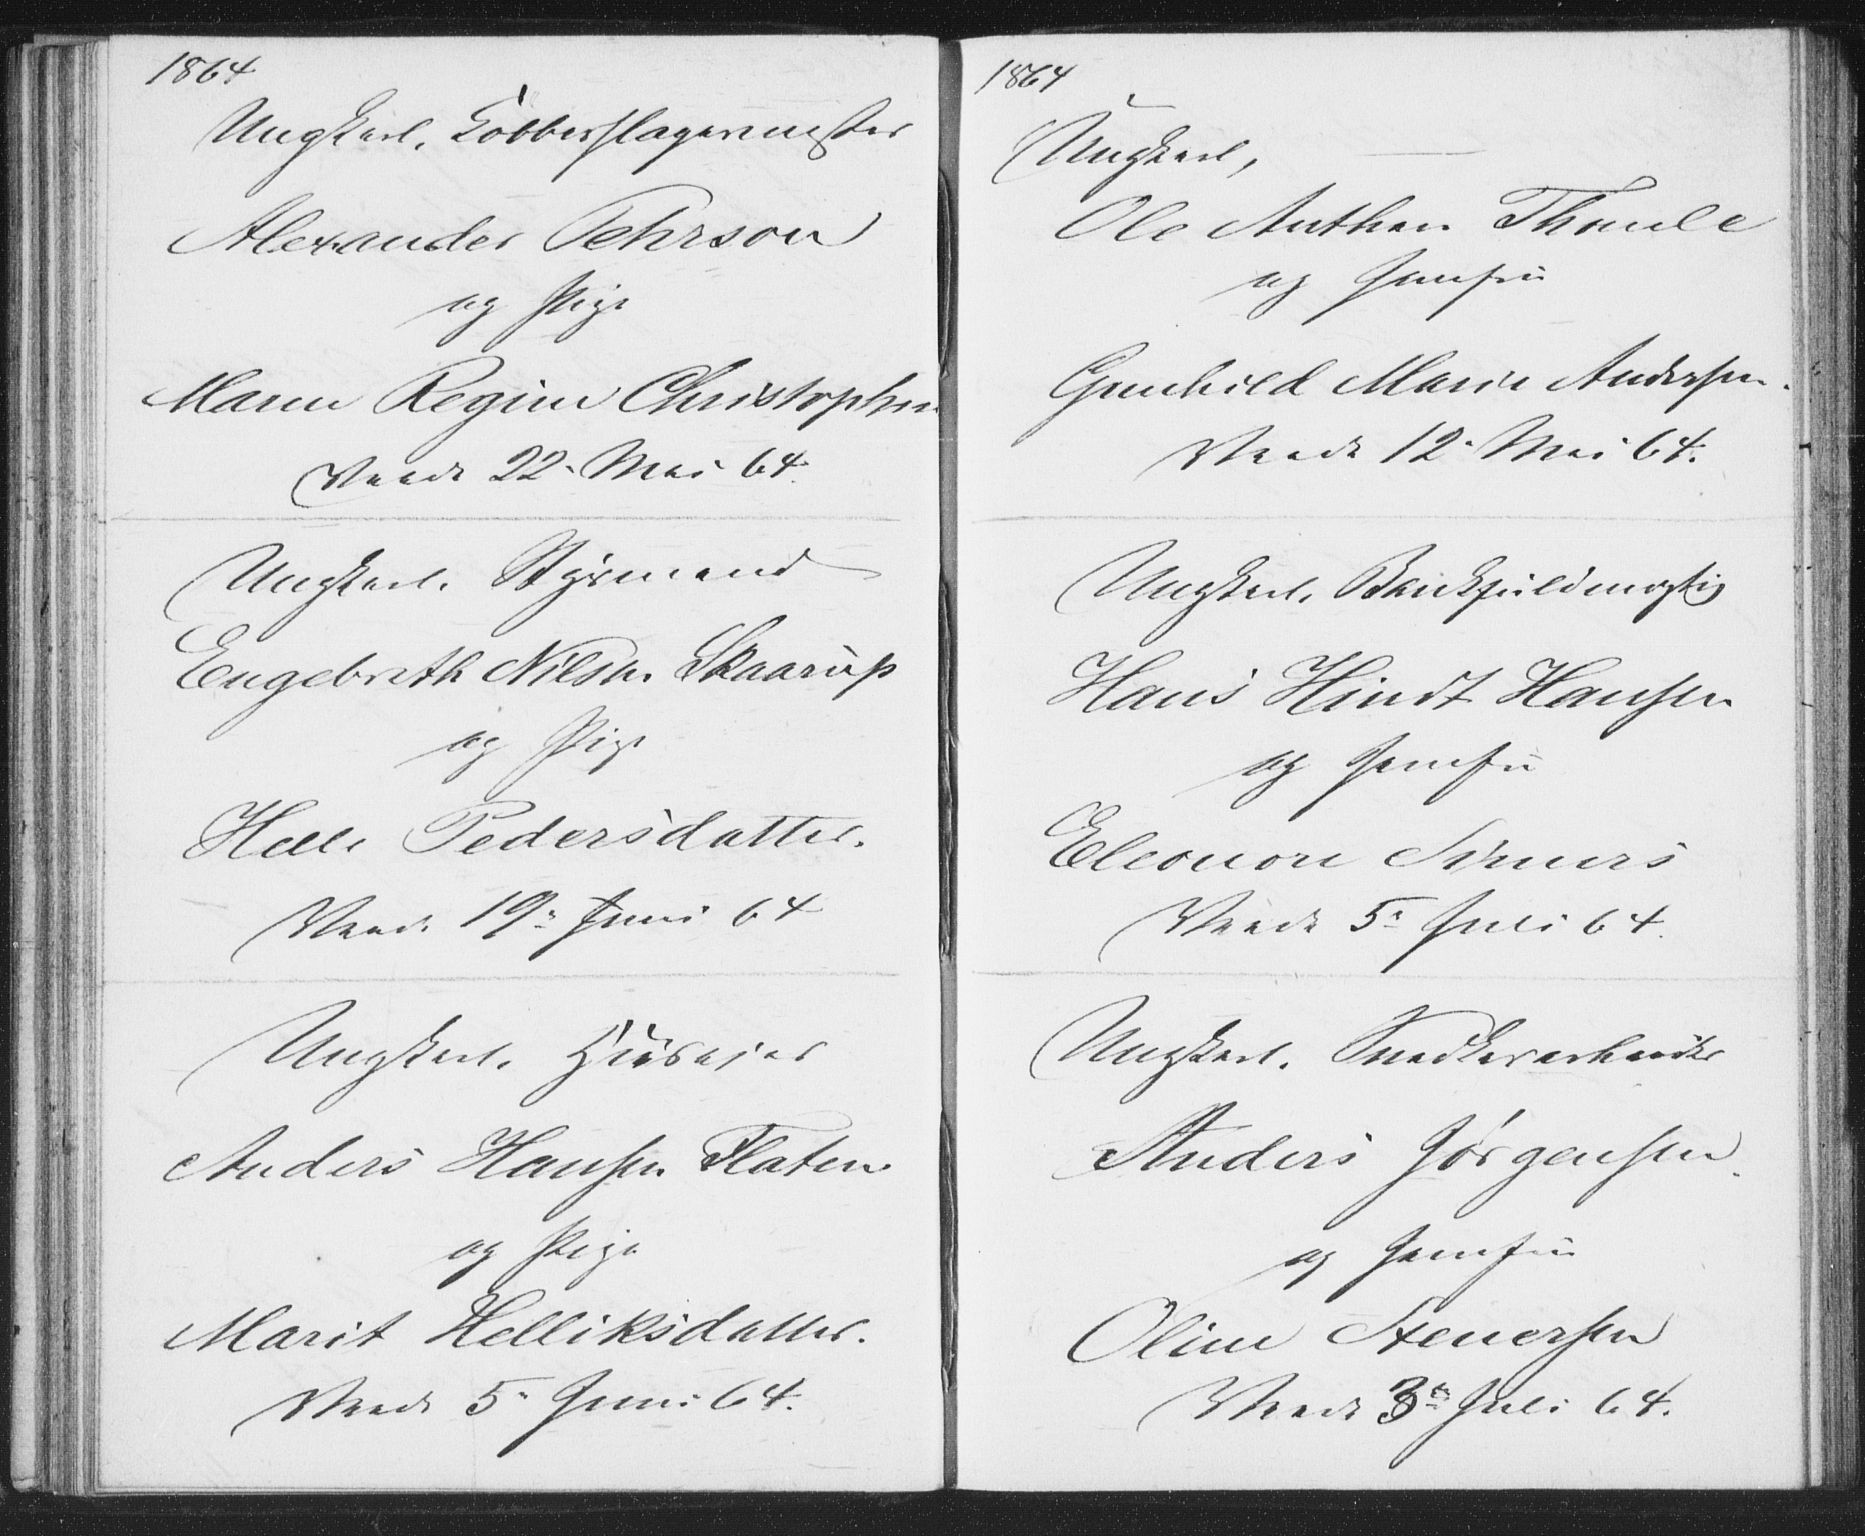 1864
Ungkarl, Kobberslagermester
Alexander Pehrson
og Pige
Maren Regine Christophersen
Viede 22 Mai 64.
Ungkarl. Styrmand
Engebreth Nilsen Skaarup
og Pige
Helle Pedersdatter.
Viede 19 Juni 64
Ungkarl. Huseier
Anders Hansen Flaten
og Pige
Marit Helliksdatter.
Viede 5 Juni 64.
1864
Ungkarl,
Ole Anthon Thoule
og Jomfru
Gunhild Marie Andersen.
Viede 12 Mai 64.
Ungkarl. Bankfuldmægtig
Hans Hindt Hansen
og Jomfru
Eleonore Simers
Viede 5 Juli 64.
Ungkarl. Snedkerarbeider
Anders Jörgensen
og Jomfru
Oline Stenersen
Viede 3 Juli 64.